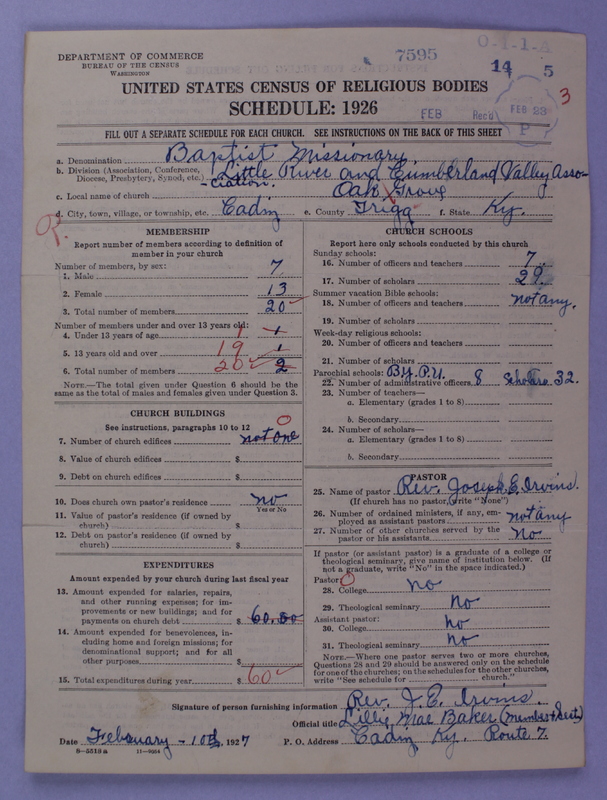 7595
0-1-1-A
DEPARTMENT OF COMMERCE
BUREAU OF THE CENSUS
WASHINGTON
14 5
UNITED STATES CENSUS OF RELIGIOUS BODIES
SCHEDULE: 1926
FEB Rec'd FEB 23 P
3
FILL OUT A SEPARATE SCHEDULE FOR EACH CHURCH. SEE INSTRUCTIONS ON THE BACK OF THIS SHEET
a. Denomination Baptist Missionary
b. Division (Association, Conference, Little River and Cumberland Valley Asso-
Diocese, Presbytery, Synod, etc.) -ciation.
c. Local name of church Oak Grove
d. City, town, village, or township, etc. Cadiz e. County Trigg f. State Ky.
R.
MEMBERSHIP
Report number of members according to definition of
member in your church
Number of members, by sex:
1. Male 7
2. Female 13
3. Total number of members 20
Number of members under and over 13 years old:
4. Under 13 years of age 1 1
5. 13 years old and over 19 1
6. Total number of members 20 2
NOTE.—The total given under Question 6 should be the
same as the total of males and females given under Question 3.
CHURCH BUILDINGS
See instructions, paragraphs 10 to 12
0
7. Number of church edifices not one
8. Value of church edifices $
9. Debt on church edifices $
10. Does church own pastor's residence no
Yes or No
11. Value of pastor's residence (if owned by
church) $
12. Debt on pastor's residence (if owned by
church) $
EXPENDITURES
Amount expended by your church during last fiscal year
13. Amount expended for salaries, repairs,
and other running expenses; for im-
provements or new buildings; and for
payments on church debt $ 60.00
14. Amount expended for benevolences, in-
cluding home and foreign missions; for
denominational support; and for all
other purposes $
15. Total expenditures during year $ 60
CHURCH SCHOOLS
Report here only schools conducted by this church
Sunday schools:
16. Number of officers and teachers 7.
17. Number of scholars 29.
Summer vacation Bible schools:
18. Number of officers and teachers not any.
19. Number of scholars
Week-day religious schools:
20. Number of officers and teachers
21. Number of scholars
Parochial schools: B.Y.P.U.
22. Number of administrative officers 8 Scholars 32.
23. Number of teachers—
a. Elementary (grades 1 to 8)
b. Secondary
24. Number of scholars—
a. Elementary (grades 1 to 8)
b. Secondary
PASTOR
25. Name of pastor Rev. Joseph E. Irvins.
(If church has no pastor, write "None")
26. Number of ordained ministers, if any, em-
ployed as assistant pastors not any
27. Number of other churches served by the
pastor or his assistants No
If pastor (or assistant pastor) is a graduate of a college or
theological seminary, give name of institution below. (If
not a graduate, write "No" in the space indicated.)
Pastor: 0
28. College no
29. Theological seminary No
Assistant pastor:
30. College no
31. Theological seminary no
NOTE.—Where one pastor serves two or more churches,
Questions 28 and 29 should be answered only on the schedule
for one of the churches; on the schedules for the other churches,
write "See schedule for church."
Signature of person furnishing information Rev. J. E. Irvins.
Official title Lilly Mae Baker (member & Sect)
Date February - 10th, 1927 P. O. Address Cadiz Ky. Route 7.
8—5518a 11—9064